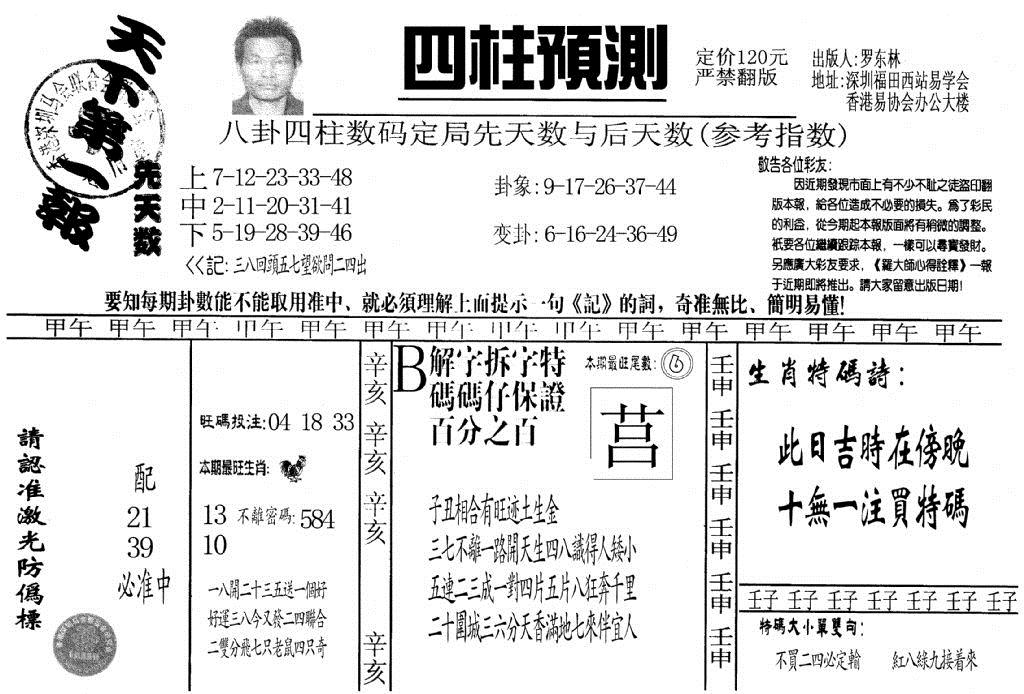 天下第一報
四柱預測
定价120元
严禁翻版
出版人:罗东林
地址:深圳福田西站易学会
香港易协会办公大楼
八卦四柱数码定局先天数与后天数(参考指数)
先天数
上 7-12-23-33-48
中 2-11-20-31-41
下 5-19-28-39-46
卦象:9-17-26-37-44
变卦:6-16-24-36-49
<<記:三八回頭五七望欲問二四出
敬告各位彩友:
因近期發現市面上有不少不耻之徒盜印翻
版本報,給各位造成不必要的損失。爲了彩民
的利益,從今期起本報版面將有稍微的調整。
衹要各位繼續跟踪本報,一樣可以尋寶發財。
另應廣大彩友要求,《羅大師心得詮釋》一報
于近期即將推出。請大家留意出版日期!
要知每期卦數能不能取用准中、就必須理解上面提示一句《記》的詞,奇准無比、簡明易懂!
甲午 甲午 甲午 甲午 甲午 甲午 甲午 甲午 甲午 甲午 甲午 甲午 甲午 甲午 甲午
請認准激光防僞標
配
21
39
必准中
旺碼投注:04 18 33
本期最旺生肖:
13 不離密碼:584
10
一八開二十三五送一個好
好運三八今又發二四聯合
二雙分飛七只老鼠四只奇
辛亥 辛亥 辛亥 辛亥
B 解字拆字特
碼碼仔保證
百分之百
本期最旺尾數:6
莒
子丑相合有旺迹土生金
三七不離一路開天生四八識得人矮小
五連二三成一對四片五片八狂奔千里
二十圍城三六分天香滿地七來伴宜人
壬申 壬申 壬申 壬申 壬申 壬申
生肖特碼詩:
此日吉時在傍晚
十無一注買特碼
壬子 壬子 壬子 壬子 壬子 壬子 壬子
特碼大小單雙句:
不買二四必定輸 紅八綠九接着來